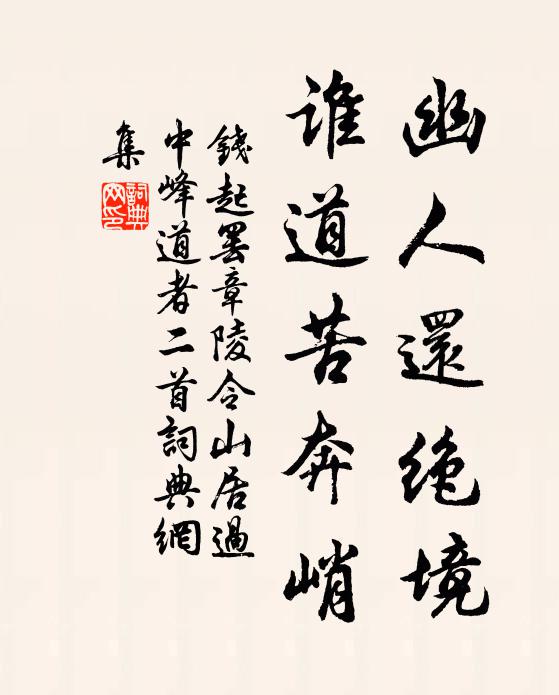 幽人還絶境
誰道苦奔峭
錢起罢章陵令山居過
中峰道者二首詞典網
集
詞典
网印